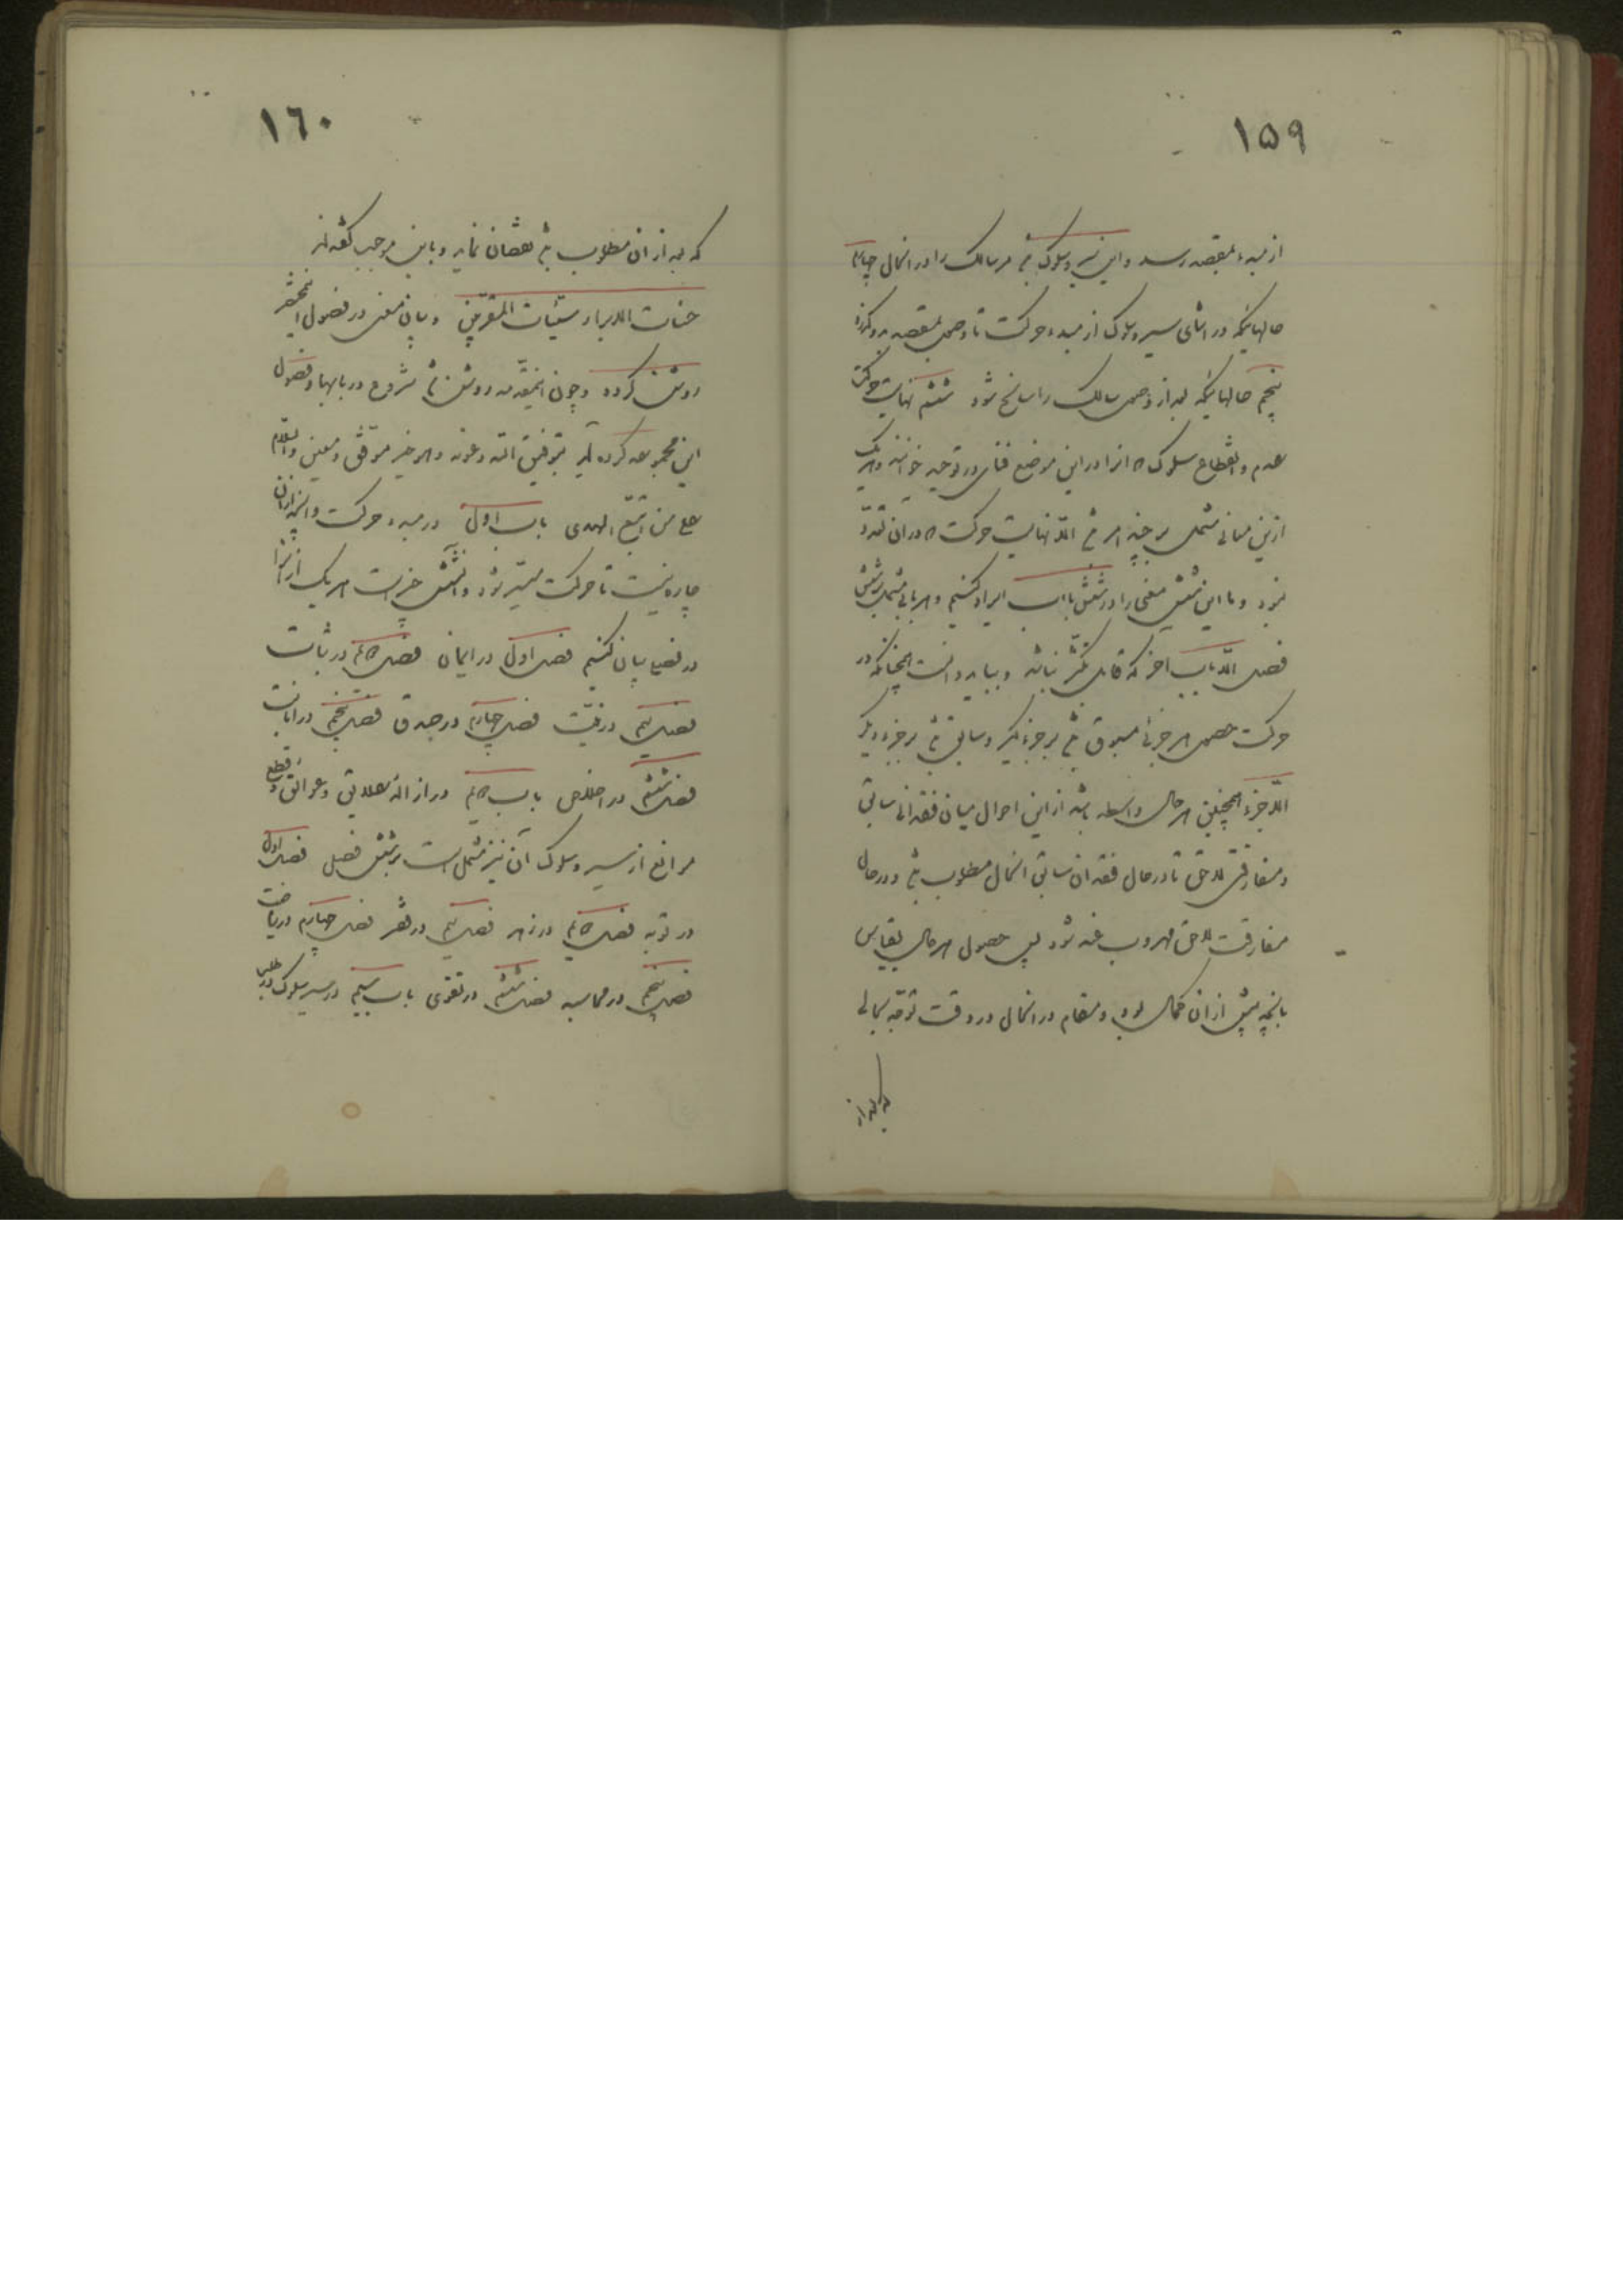 ١٥٩
از مبدء بمقصد رسد و این سیر و سلوک باشد مر سالک را در انحال چهارم
حالهائیکه در اثنای سیر و سلوک از مبدء حرکت تا وصول بمقصد برو گذرد
پنجم حالهائیکه بعد از وصول سالک را سانح شود ششم نهایت حرکت
عدم و انقطاع سلوک که آنرا در این موضع فنای در توحید خوانند و هریک
ازین معانی مشتمل بر چند امر باشد الّا نهایت حرکت که در آن تعدّد
نبود و ما این شش معنی را در شش باب ایراد کنیم و هر بابی مشتمل بر شش
فصل الّا باب آخر که قابل تکثّر نباشد و بباید دانست همچنانکه در
حرکت حصول هر جزئی مسبوق باشد بر جزء دیگر و سابق باشد بر جزء دیگر
الّا جزء همچنین هر حالی واسطه باشد از این احوال میان فقدانی سابق
و مفارقتی لاحق تا در حال فقدان سابق انحال مطلوب باشد و در حال
مفارقت لاحق مهروب عنه شود پس حصول هر حال بقیاس
بانچه پیش از ان کمال بود و مقام در انحال در وقت توجّه بحالی
که بعد از
١٦٠
که بعد از ان مطلوب باشد نقصان نماید و باین موجب گفته‌اند
حسنات الابرار سیّئات المقرّبین و بیان معنی در فصول این مختصر
روشن گردد و چون این مقدمه روشن شد شروع در بابها و فصول
این مجموعه کرده آید بتوفیق الله و عونه و هو خیر موفّق و معین و السلام
علی من اتّبع الهدی باب اول در مبدء حرکت و آنچه از آن
چاره نیست تا حرکت میسّر شود و آن شش چیز است هر یک از آنرا
در فصلی بیان کنیم فصل اول در ایمان فصل دویم در ثبات
فصل سیم در نیّت فصل چهارم در صدق فصل پنجم در انابت
فصل ششم در اخلاص باب دویم در ازاله علایق و عوایق و قطع
موانع از سیر و سلوک آن نیز مشتمل است بر شش فصل فصل اول
در توبه فصل دویم در زهد فصل سیم در فقر فصل چهارم در ریاضت
فصل پنجم در محاسبه فصل ششم در تقوی باب سیم در سیر و سلوک در طلب